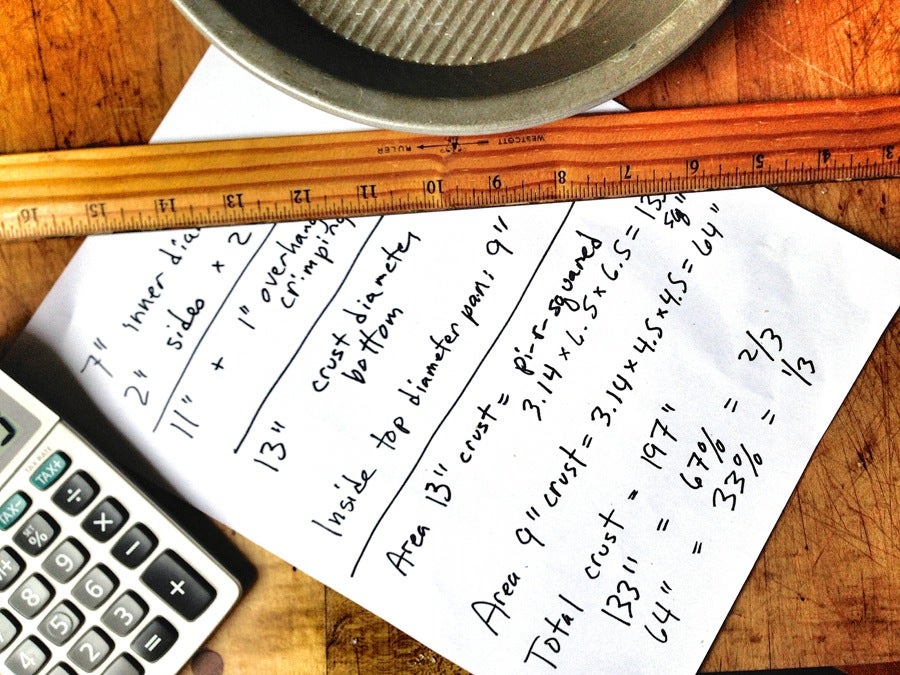 WESTCOTT
RULER
16 15 14 13 12 11 10 9 8 7 6 5 4 3
7" inner
2" sides x 2
11" + 1" overhang
crimping
13" crust diameter
bottom
Inside top diameter pan: 9"
Area 13" crust = pi-r-squared
3.14 x 6.5 x 6.5 =
sq"
Area 9" crust = 3.14 x 4.5 x 4.5 = 64"
Total crust = 197"
133" = 67% = 2/3
64" = 33% = 1/3
TAX RATE
TAX- TAX+
SET
% ÷
M+ 9 × −
8 6 +
7 5 3
4 2 =